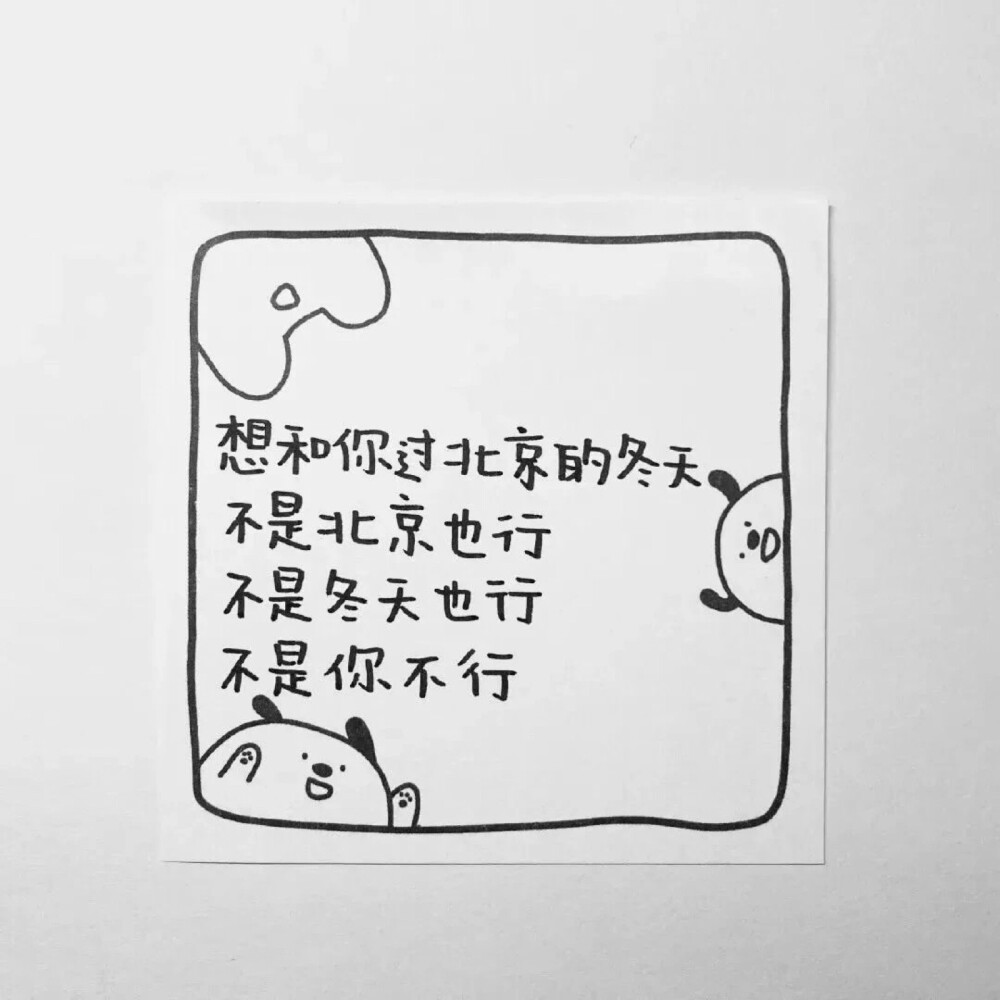 想和你过北京的冬天
不是北京也行
不是冬天也行
不是你不行